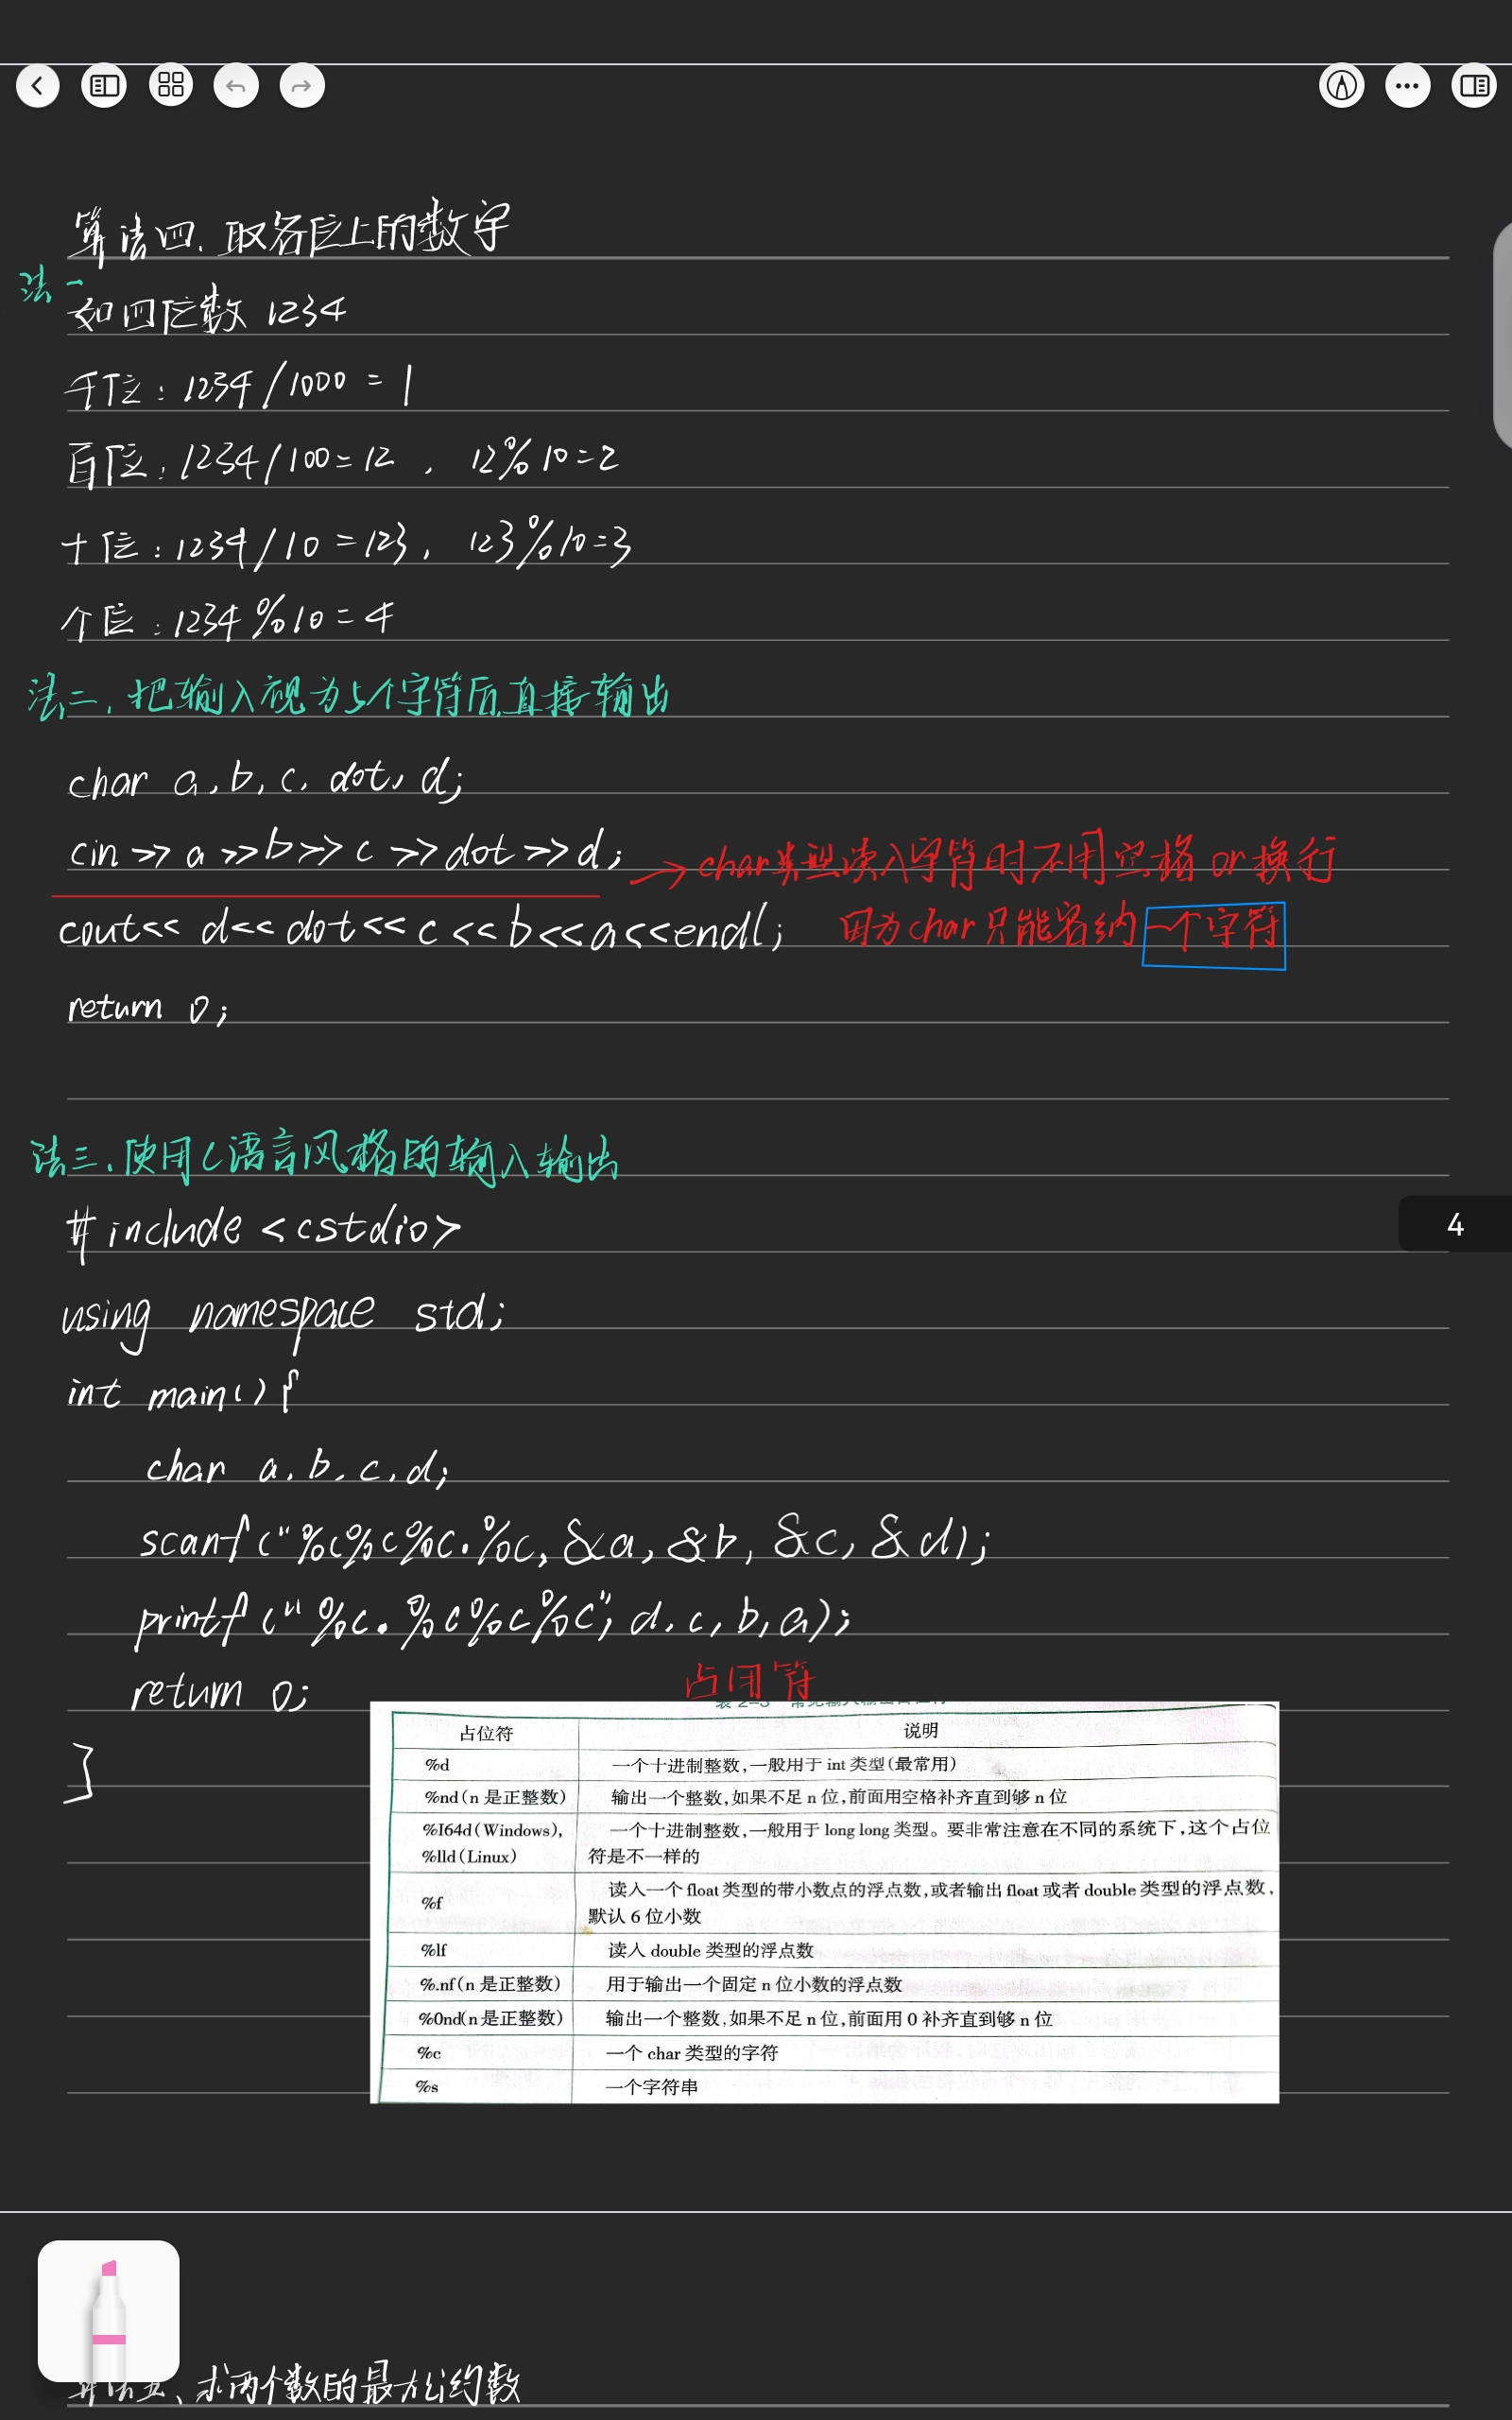 算法四、取各位上的数字
法一
如四位数 1234
千位：1234/1000=1
百位：1234/100=12，12%10=2
十位：1234/10=123，123%10=3
个位：1234%10=4
法二、把输入视为5个字符后直接输出
char a,b,c,dot,d;
cin>>a>>b>>c>>dot>>d; →char类型读入字符时不用空格or换行
cout<<d<<dot<<c<<b<<a<<endl; 因为char只能容纳一个字符
return 0;
法三、使用C语言风格的输入输出
#include <cstdio>
4
using namespace std;
int main(){
char a,b,c,d;
scanf("%c%c%c.%c,&a,&b,&c,&d);
printf("%c.%c%c%c",d,c,b,a);
return 0;
}
占闭符
占位符 说明
%d 一个十进制整数,一般用于 int 类型(最常用)
%nd(n 是正整数) 输出一个整数,如果不足 n 位,前面用空格补齐直到够 n 位
%I64d(Windows), 一个十进制整数,一般用于 long long 类型。要非常注意在不同的系统下,这个占位
%lld(Linux) 符是不一样的
%f 读入一个 float 类型的带小数点的浮点数,或者输出 float 或者 double 类型的浮点数,
默认 6 位小数
%lf 读入 double 类型的浮点数
%.nf(n 是正整数) 用于输出一个固定 n 位小数的浮点数
%0nd(n 是正整数) 输出一个整数,如果不足 n 位,前面用 0 补齐直到够 n 位
%c 一个 char 类型的字符
%s 一个字符串
算法五、求两个数的最大公约数